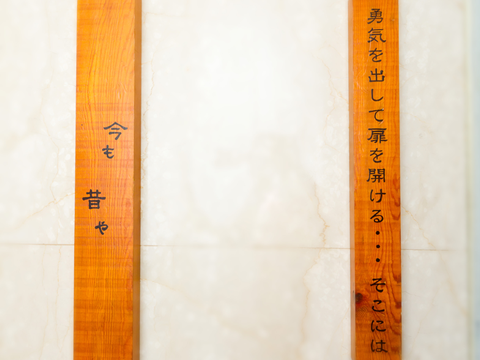 勇気を出して扉を開ける・・・そこには
今も
昔や